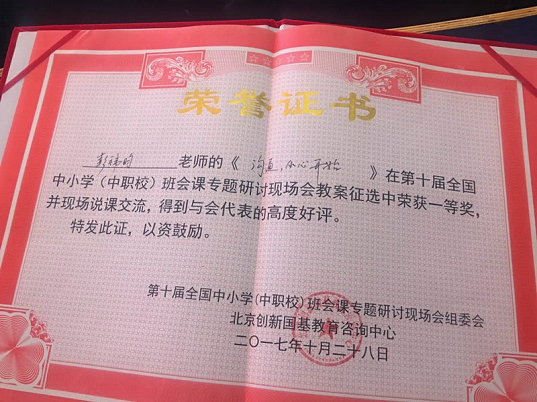 荣誉证书
老师的《沟通，从心开始》在第十届全国
中小学（中职校）班会课专题研讨现场会教案征选中荣获一等奖，
并现场说课交流，得到与会代表的高度好评。
特发此证，以资鼓励。
第十届全国中小学(中职校)班会课专题研讨现场会组委会
北京创新国基教育咨询中心
二〇一七年十月二十八日